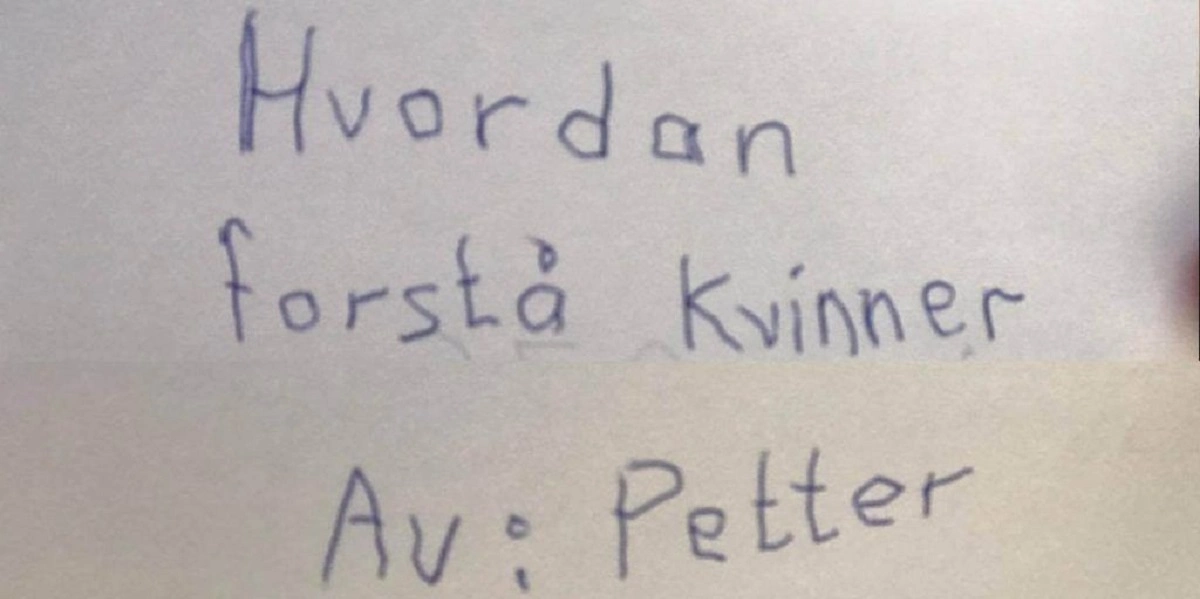 Hvordan
forstå kvinner
Av: Petter